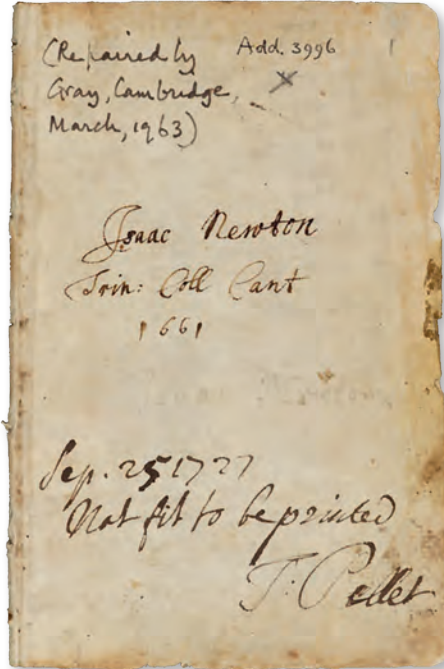 (Repaired by
Gray, Cambridge,
March, 1963)
Add. 3996
1
Isaac Newton
Trin: Coll Cant
1661
Sep. 25 1727
Not fit to be printed
T: Pellet